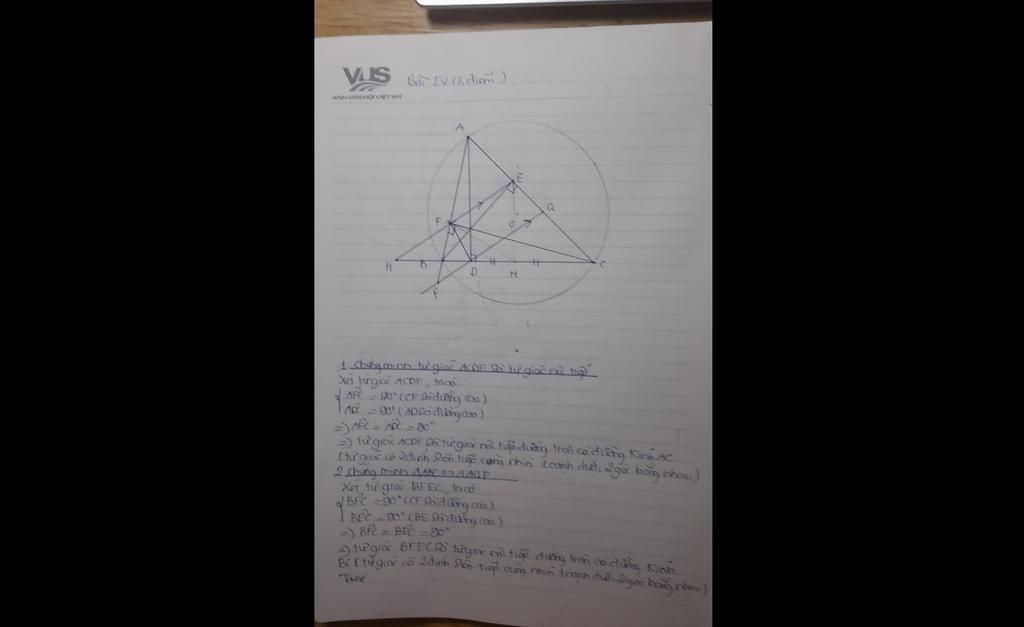 VUS
ANH VĂN HỘI VIỆT MỸ
Bài IV ( điểm)
A
E
Q
F
O
H
B
D
M
C
P
1. Chứng minh tứ giác ACDF là tứ giác nội tiếp
Xét tứ giác ACDF, ta có:
AFC = 90° (CF là đường cao)
ADC = 90° (AD là đường cao)
=> AFC = ADC = 90°
=> tứ giác ACDF là tứ giác nội tiếp đường tròn có đường kính AC
(tứ giác có 2 đỉnh liên tiếp cùng nhìn 1 cạnh dưới 2 góc bằng nhau)
2. Chứng minh
Xét tứ giác BFEC, ta có
BFC = 90° (CF là đường cao)
BEC = 90° (BE là đường cao)
=> BFC = BEC = 90°
=> tứ giác BFEC là tứ giác nội tiếp đường tròn có đường kính
BC (tứ giác có 2 đỉnh liên tiếp cùng nhìn 1 cạnh dưới 2 góc bằng nhau)